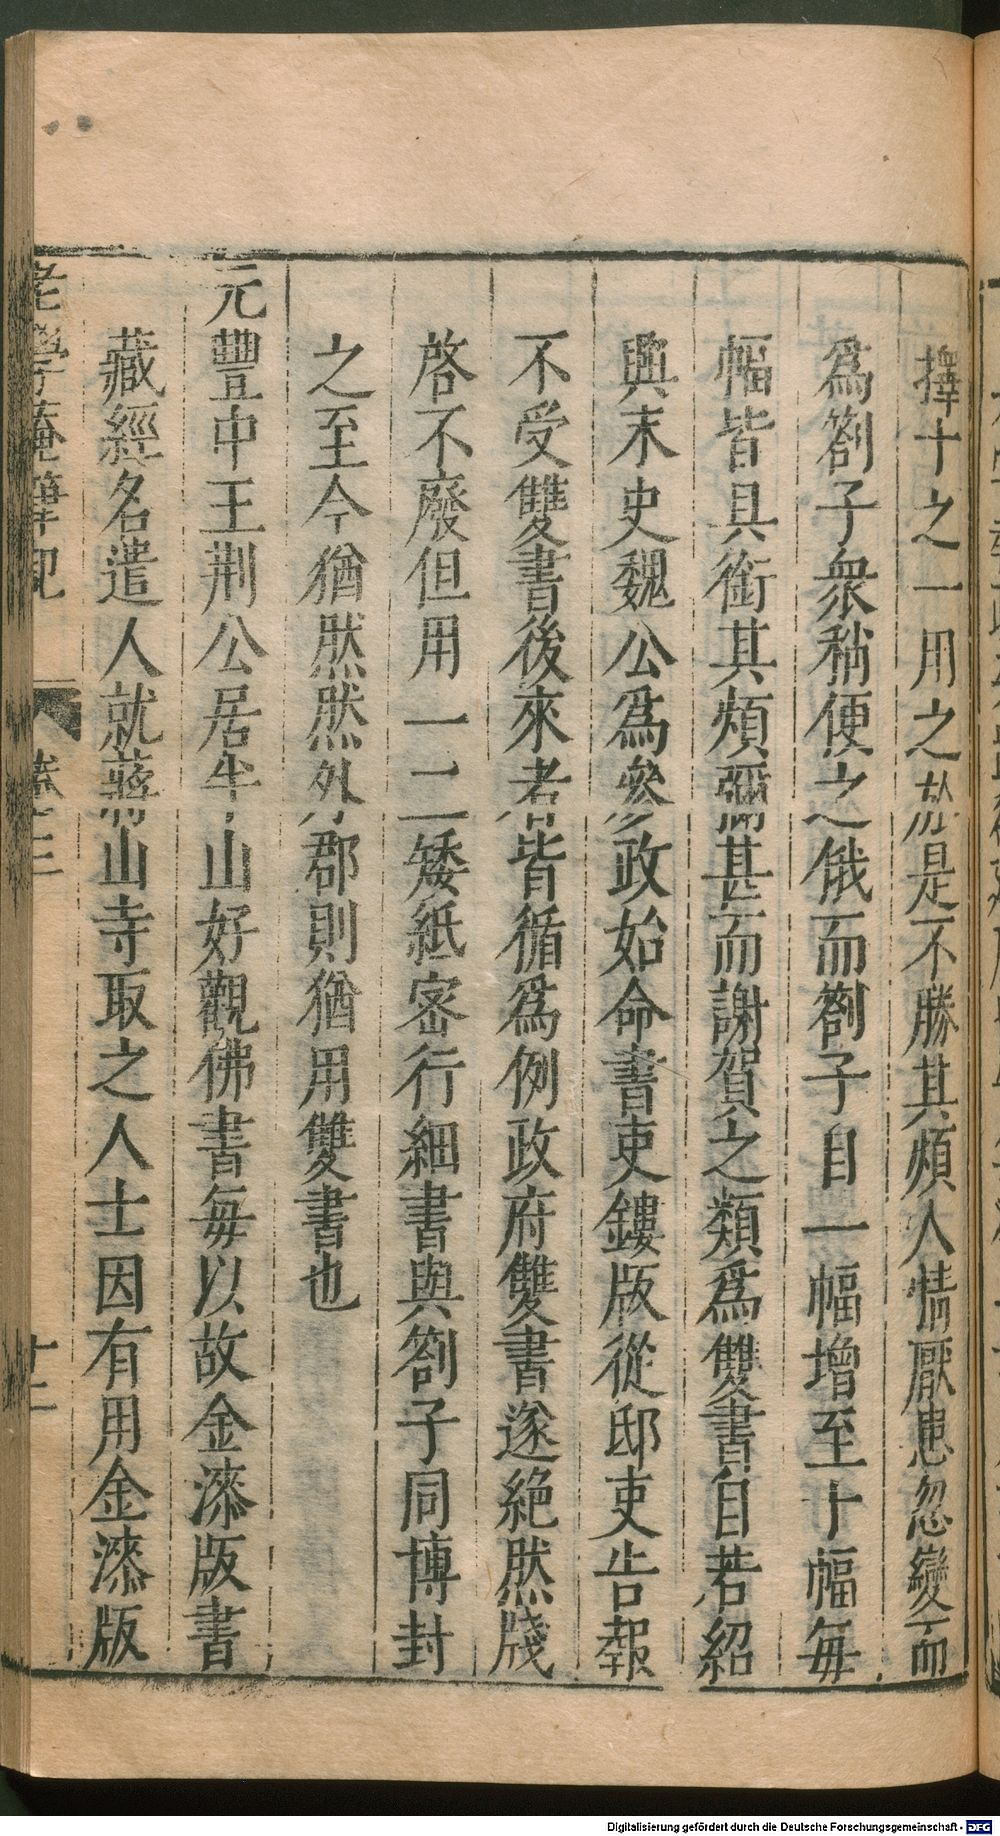 擇十之一用之於是不勝其煩人情厭患忽變而
爲劄子衆稍便之俄而劄子自一幅增至十幅每
幅皆具銜其煩彌甚而謝賀之類爲雙書自若紹
興末史魏公爲參政始命書吏鏤版從邸吏告報
不受雙書後來者皆循爲例政府雙書遂絶然牋
啓不廢但用一二矮紙密行細書與劄子同博封
之至今猶然然外郡則猶用雙書也
元豐中王荆公居半山好觀佛書每以故金漆版書
藏經名遣人就蔣山寺取之人士因有用金漆版
老學庵筆記 卷三 十二
Digitalisierung gefördert durch die Deutsche Forschungsgemeinschaft - DFG